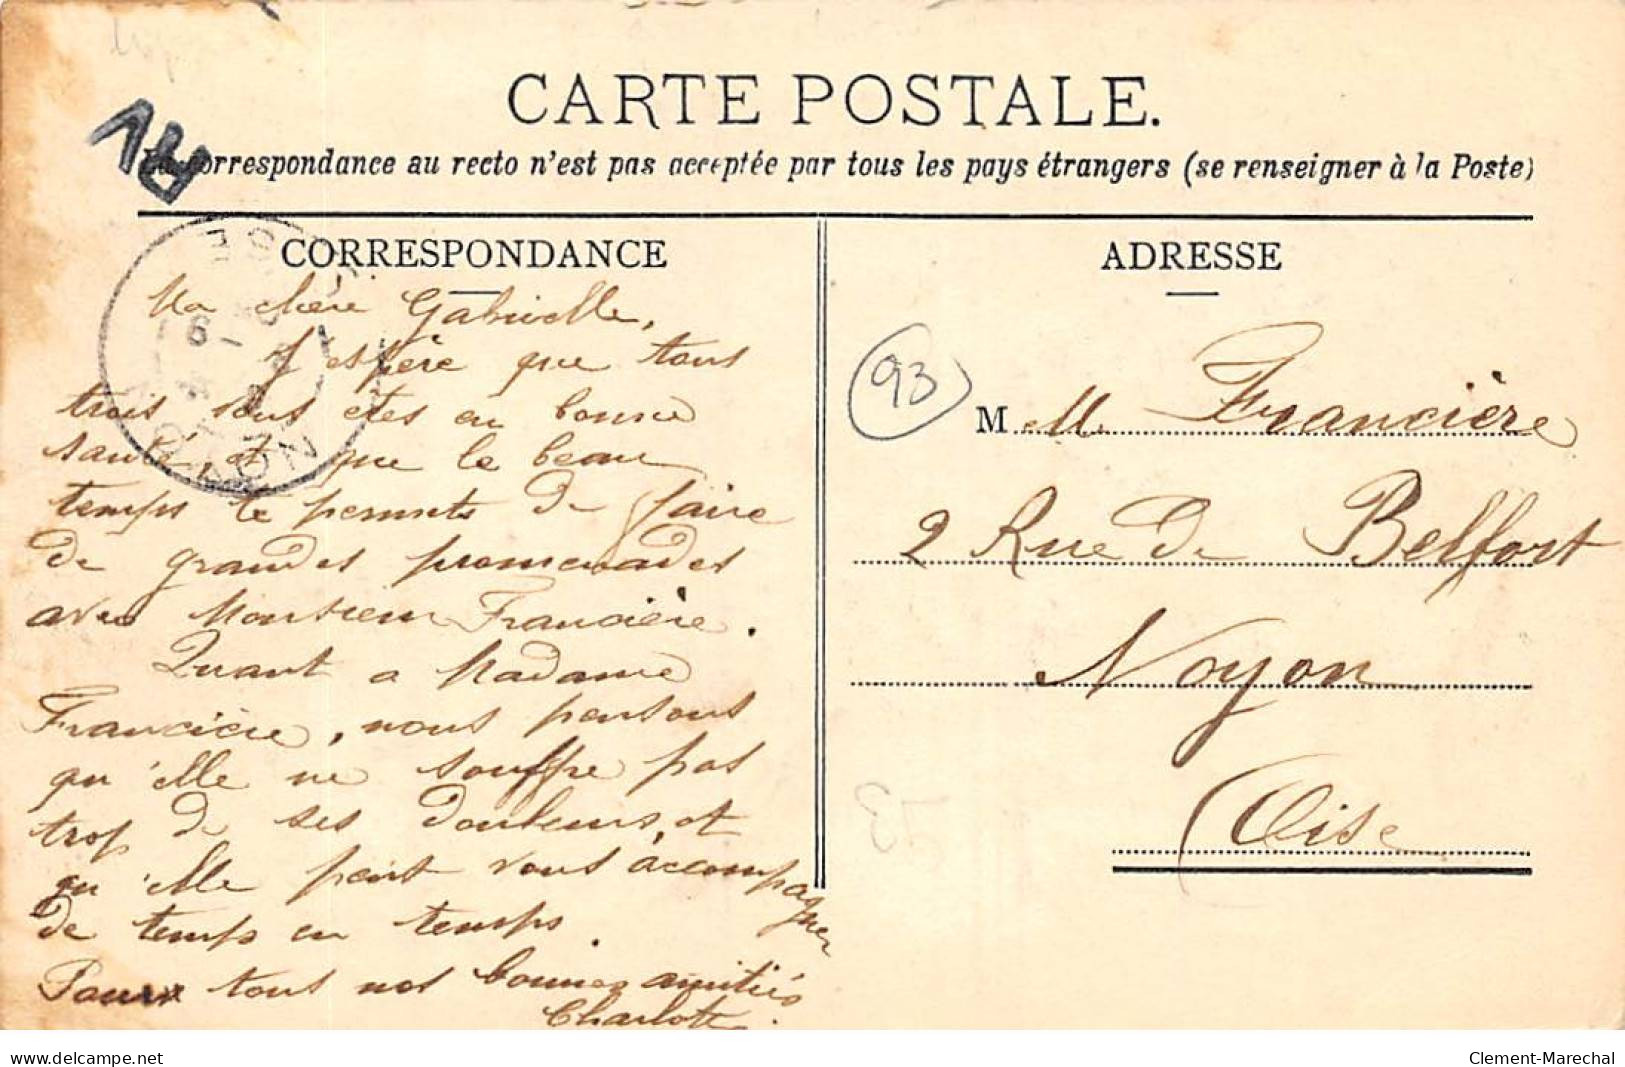 CARTE POSTALE.
La correspondance au recto n'est pas acceptée par tous les pays étrangers (se renseigner à la Poste)
CORRESPONDANCE
Ma chère Gabrielle,
J'espère que tous
trois vous etes en bonne
santé, et que le beau
temps te permets de faire
de grandes promenades
avec Monsieur Francière.
Quant a Madame
Francière, nous pensons
qu'elle ne souffre pas
trop de ses douleurs, et
qu'elle peut vous accompagner
de temps en temps.
Pour tous nos bonnes amitiés
Charlotte.
ADRESSE
93
M elle Francière
2 Rue de Belfort
Noyon
(Oise
NOYON
OISE
delcampe.net
Clement-Marechal